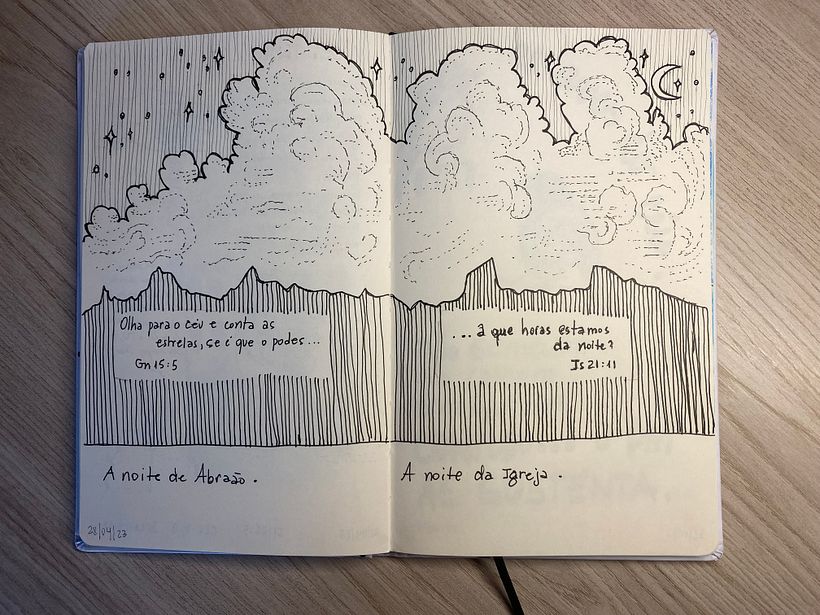 Olha para o céu e conta as
estrelas, se é que o podes...
Gn 15:5
A noite de Abraão.
28/04/23
...a que horas estamos
da noite?
Is 21:11
A noite da Igreja.